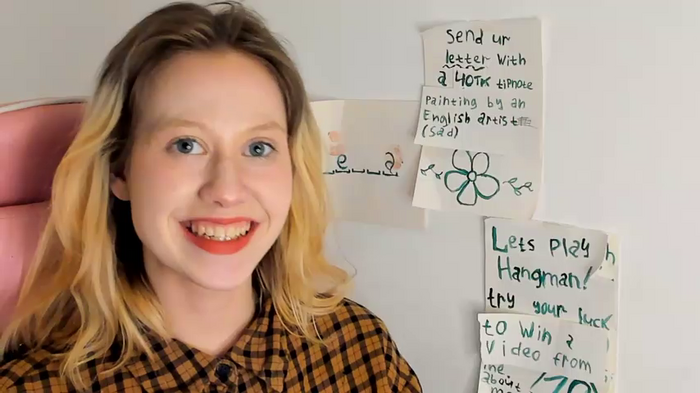 Send ur
letter with
a 40TK tipnote
Painting by an
English artist
(Sad)
e _ _ _ a
Lets play
Hangman!
try your luck
to Win a
Video from
me
about